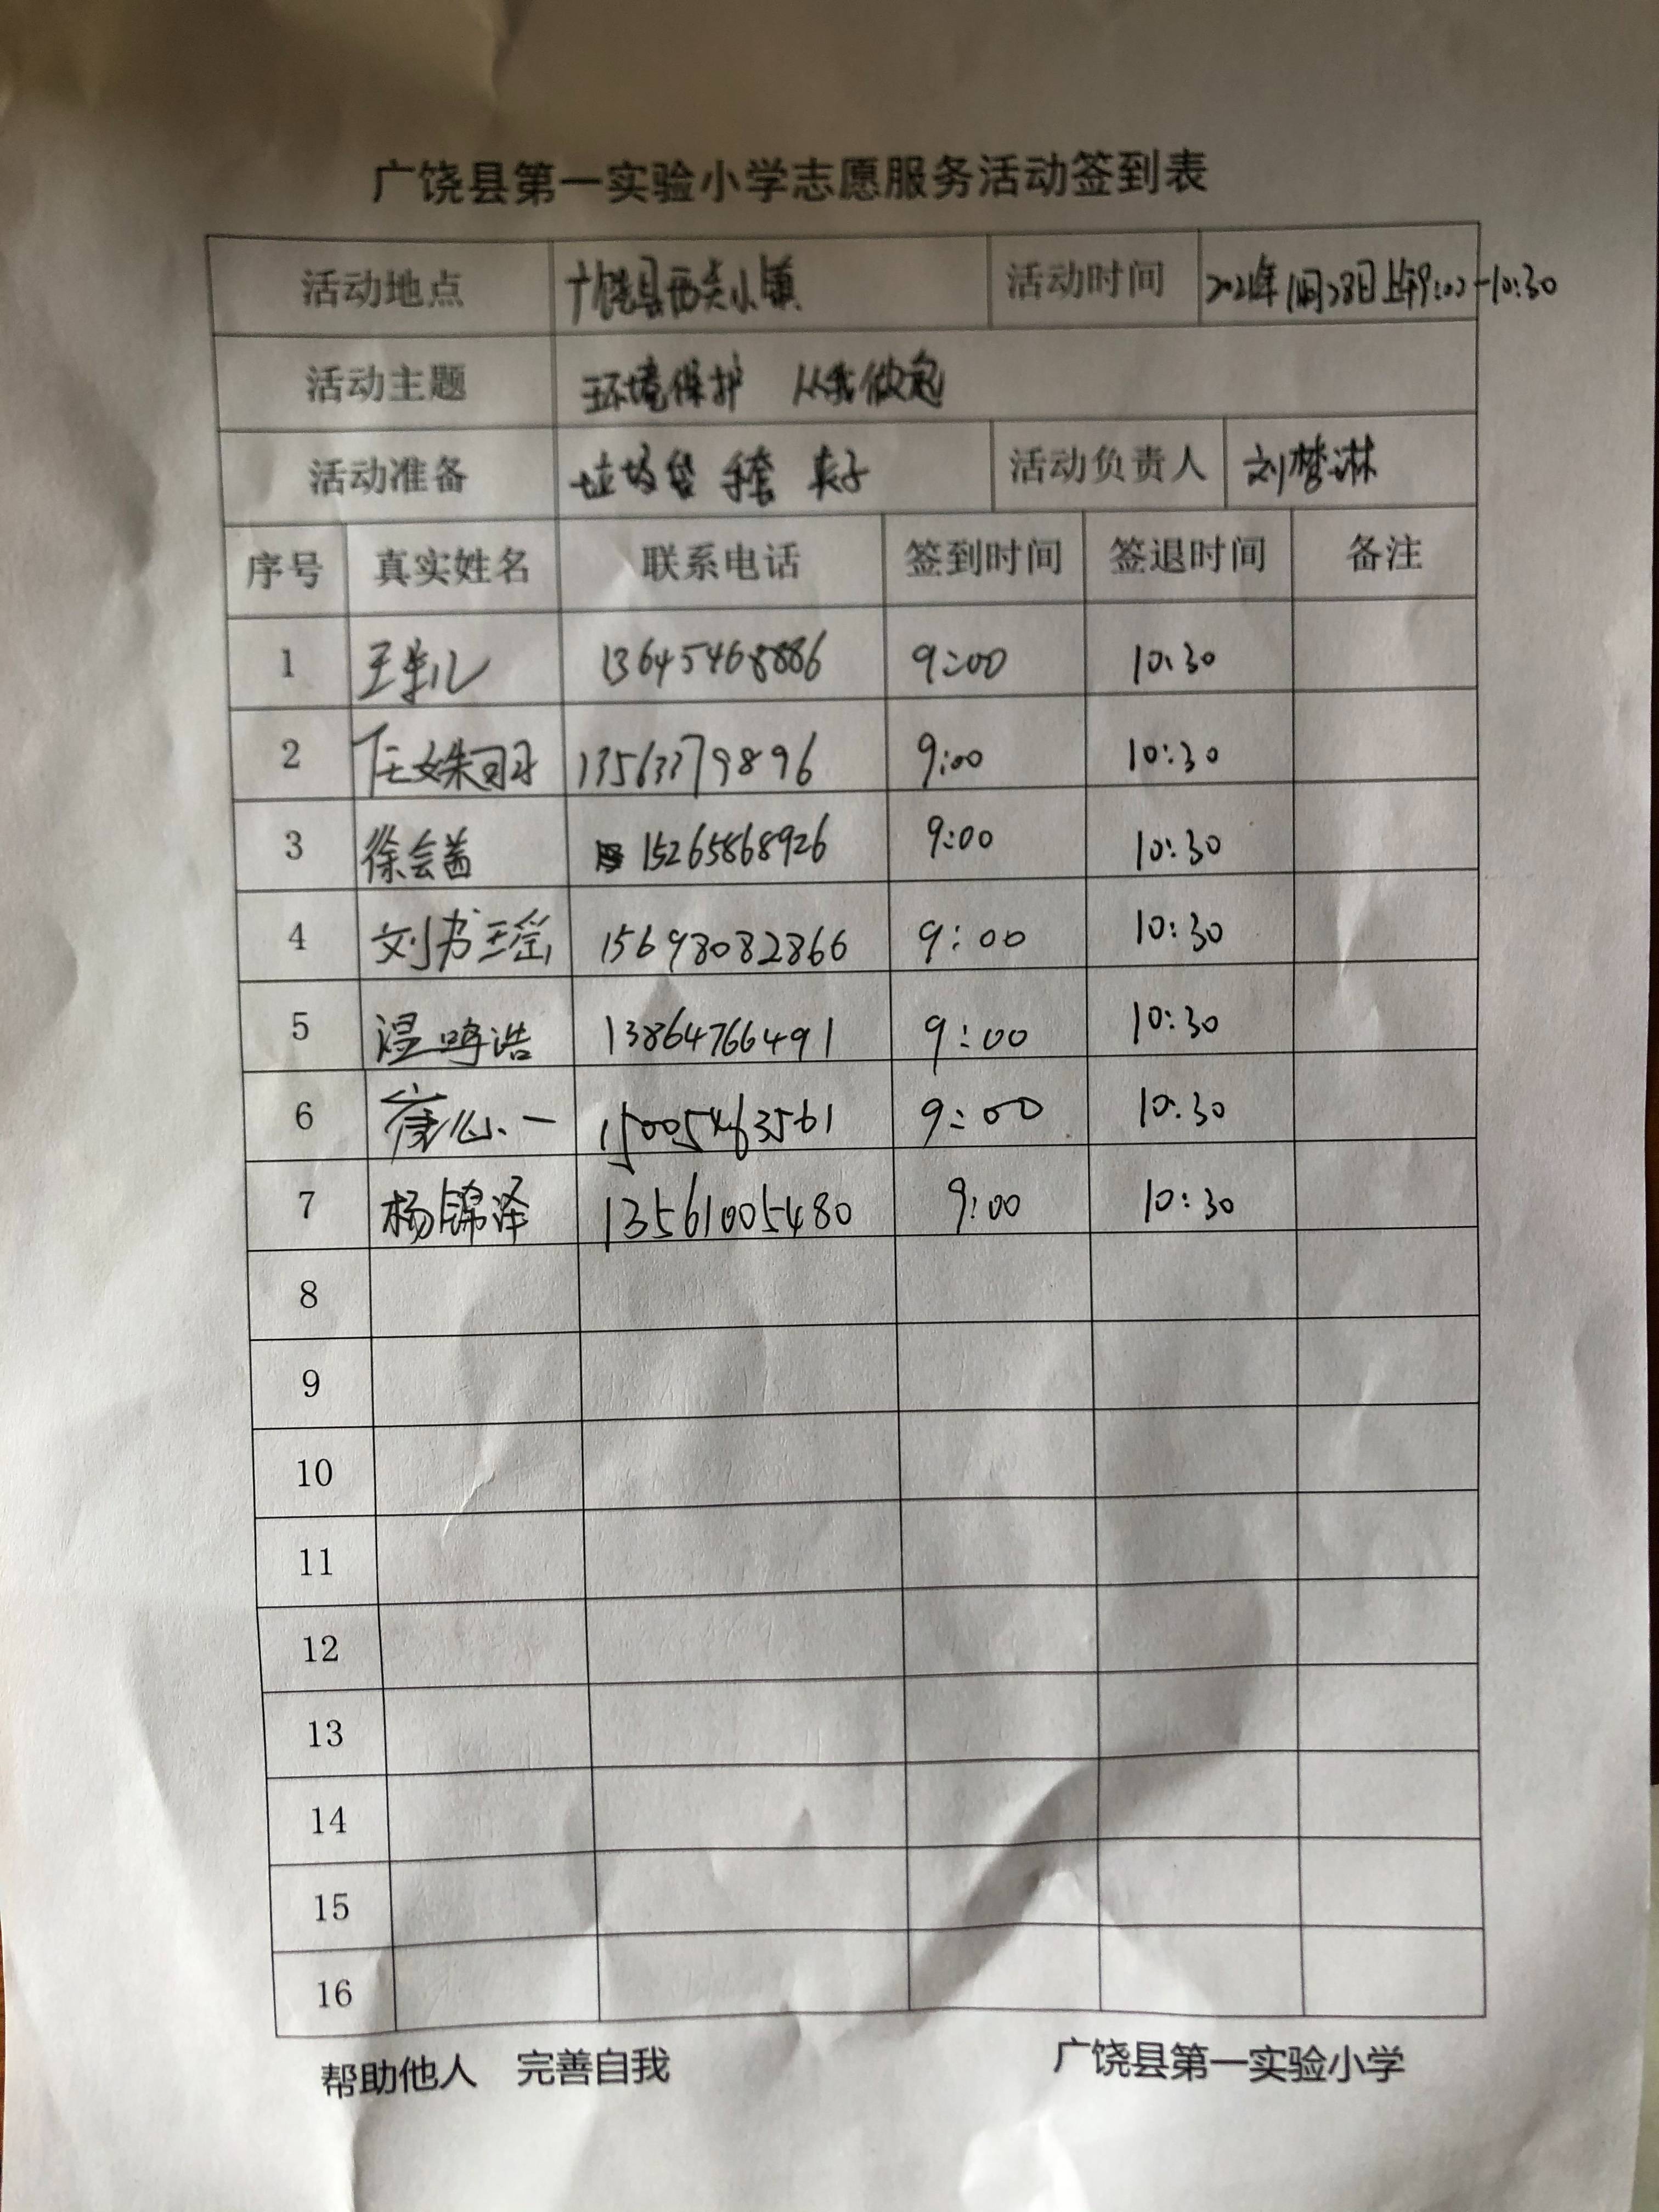 广饶县第一实验小学志愿服务活动签到表
活动地点 广饶县西关小镇 活动时间 2021年11月28日上午9:00-10:30
活动主题 环境保护 从我做起
活动准备 垃圾袋 手套 夹子 活动负责人 刘梦淋
序号 真实姓名 联系电话 签到时间 签退时间 备注
1 王 13645468886 9:00 10:30
2 任姝羽 13563379896 9:00 10:30
3 徐会茜 15265868926 9:00 10:30
4 刘书瑶 15698082866 9:00 10:30
5 温鸣浩 13864766491 9:00 10:30
6 崔心一 15005463561 9:00 10:30
7 杨锦泽 13561005480 9:00 10:30
8
9
10
11
12
13
14
15
16
帮助他人 完善自我 广饶县第一实验小学